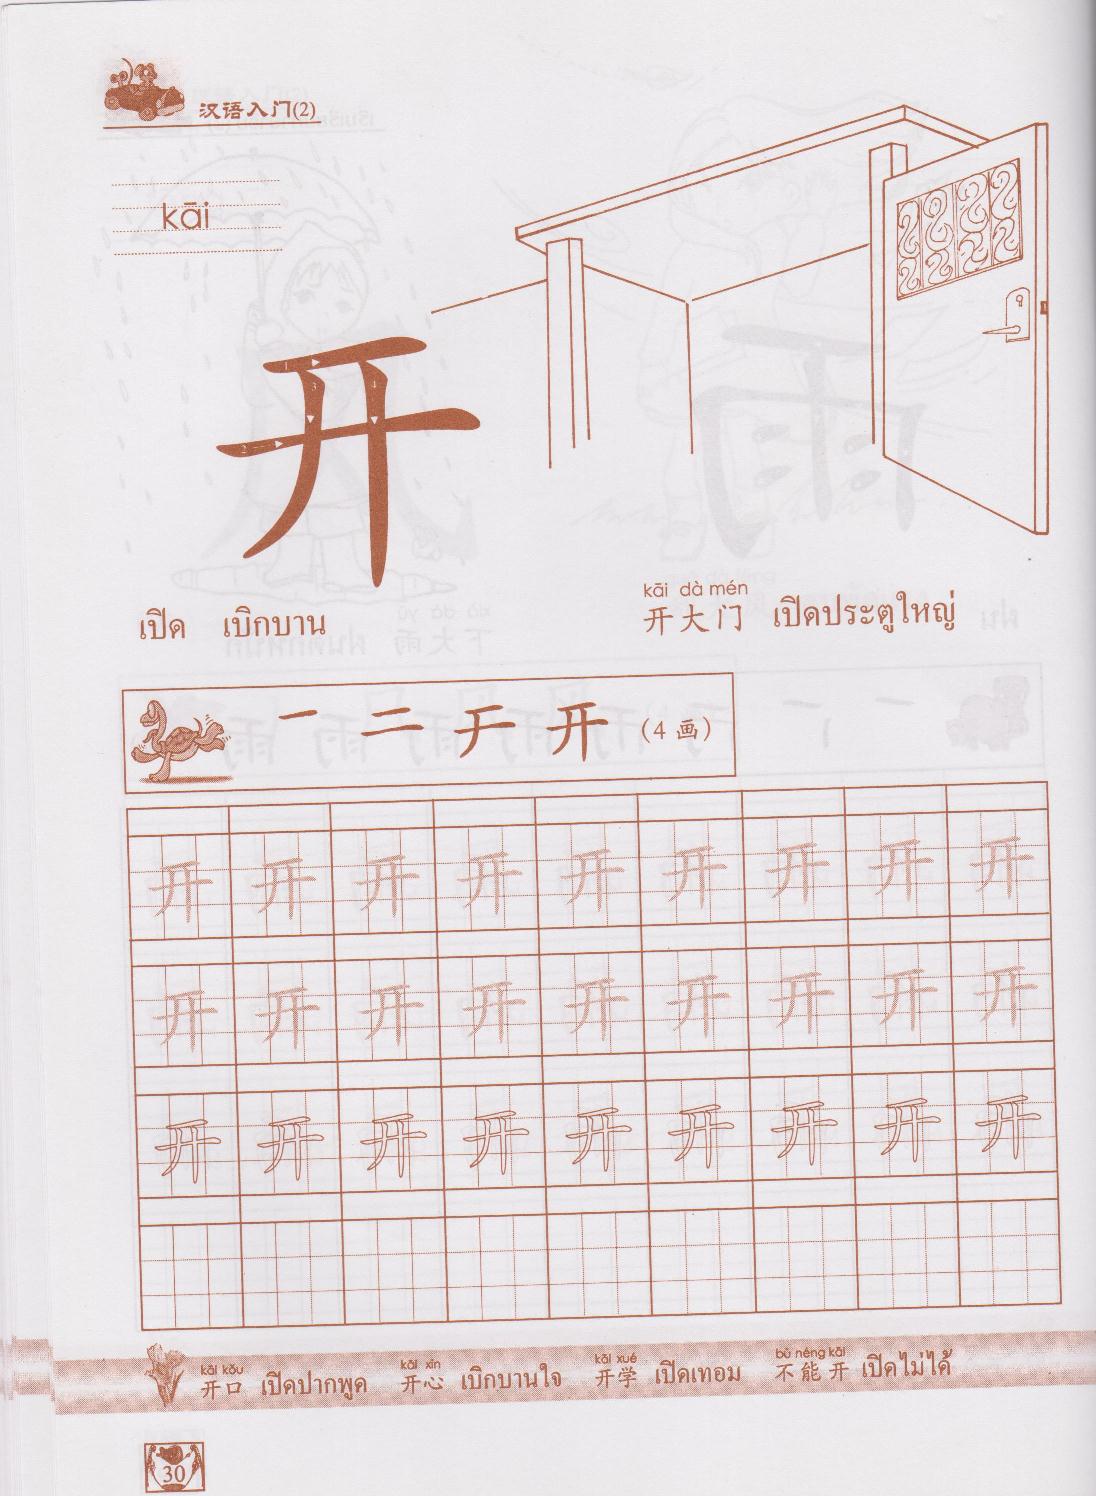 汉语入门(2)
kāi
开
1 2 3 4
เปิด เบิกบาน
kāi dà mén
开大门 เปิดประตูใหญ่
一 二 于 开 (4 画)
开 开 开 开 开 开 开 开 开
开 开 开 开 开 开 开 开 开
开 开 开 开 开 开 开 开 开
kāi kǒu kāi xīn kāi xué bù néng kāi
开口 เปิดปากพูด 开心 เบิกบานใจ 开学 เปิดเทอม 不能开 เปิดไม่ได้
30